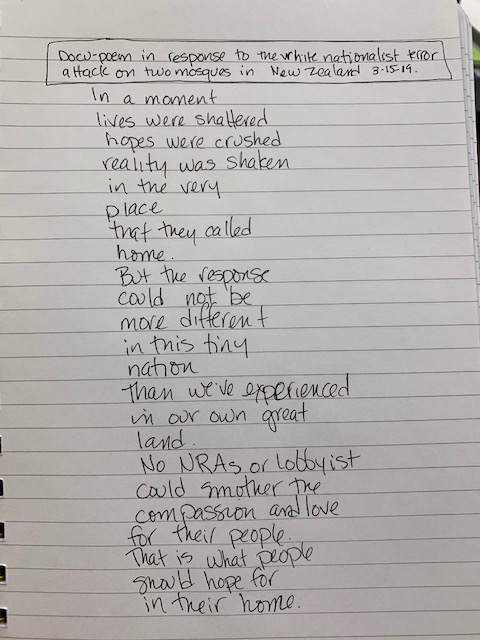 Docu-poem in response to the white nationalist terror
attack on two mosques in New Zealand 3-15-19.
In a moment
lives were shattered
hopes were crushed
reality was shaken
in the very
place
that they called
home.
But the response
could not be
more different
in this tiny
nation
Than we've experienced
in our own great
land.
No NRAs or lobbyist
could smother the
compassion and love
for their people.
That is what people
should hope for
in their home.